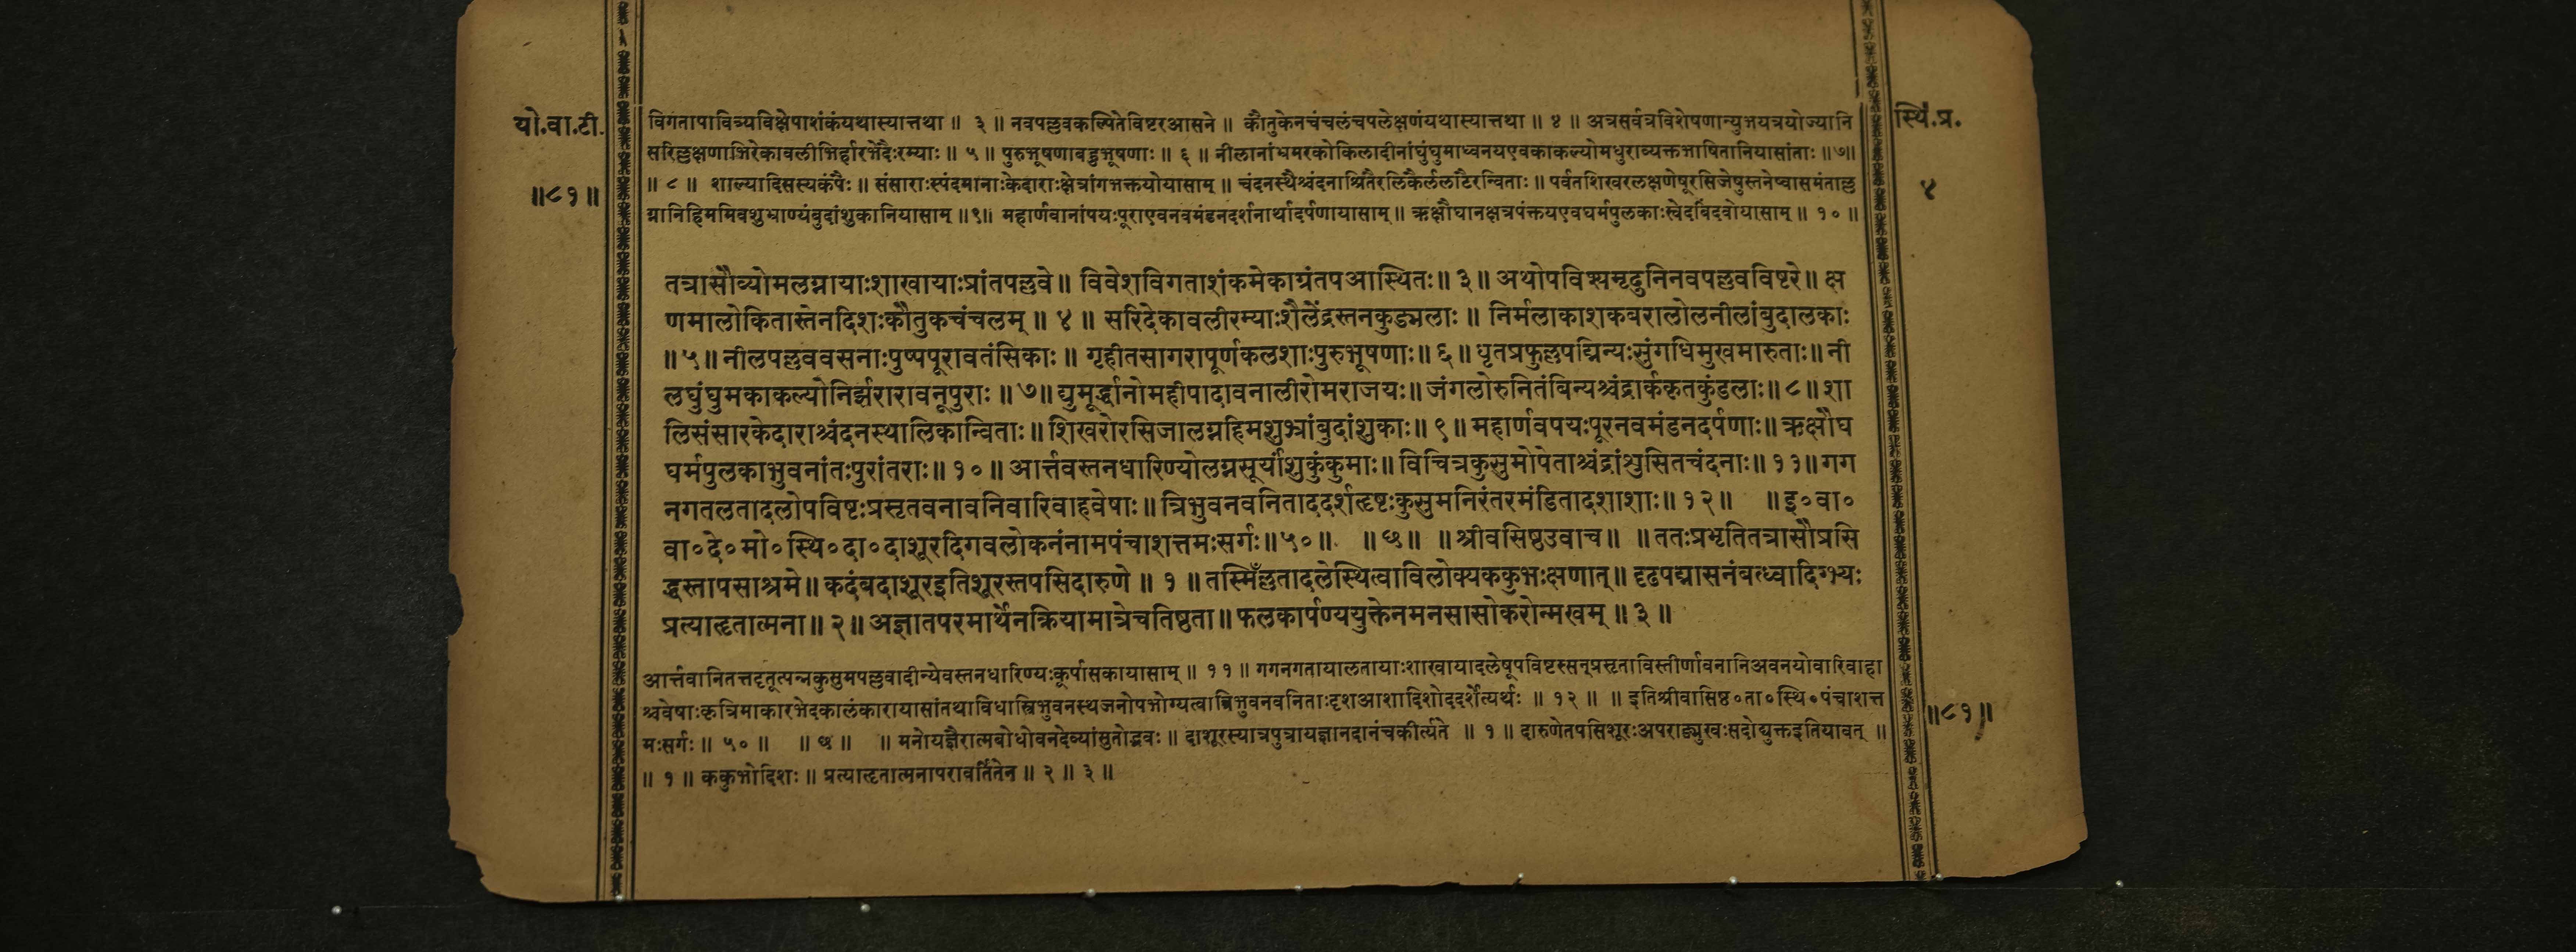 यो.वा.टी.
॥८१॥
विगतापावित्र्यविक्षेपाशंकंयथास्यात्तथा ॥ ३ ॥ नवपल्लवकल्पितेविष्टरआसने ॥ कौतुकेनचंचलंचपलेक्षणंयथास्यात्तथा ॥ ४ ॥ अत्रसर्वत्रविशेषणान्युभयत्रयोज्यानि
सरिल्लक्षणाभिरेकावलीभिर्हारभेदैःरम्याः ॥ ५ ॥ पुरुभूषणाबहुभूषणाः ॥ ६ ॥ नीलानांभ्रमरकोकिलादीनांघुंघुमाध्वनयएवकाकल्योमधुराव्यक्तभाषितानियासांताः ॥७॥
॥ ८ ॥ शाल्यादिसस्यकंपैः ॥ संसाराःस्पंदमानाःकेदाराःक्षेत्रांगभक्तयोयासाम् ॥ चंदनस्थैश्चंदनाश्रितैरलिकैर्ललाटैरन्विताः ॥ पर्वतशिखरलक्षणेषूरसिजेषुस्तनेष्वासमंताल्ल
ग्नानिहिममिवशुभ्राण्यंबुदांशुकानियासाम् ॥९॥ महार्णवानांपयःपूराएवनवमंडनदर्शनार्थादर्पणायासाम् ॥ ऋक्षौघानक्षत्रपंक्तयएवघर्मपुलकाःस्वेदबिंदवोयासाम् ॥ १० ॥
तत्रासौव्योमलग्नायाःशाखायाःप्रांतपल्लवे॥ विवेशविगताशंकमेकाग्रंतपआस्थितः॥ ३॥ अथोपविश्यमृदुनिनवपल्लवविष्टरे॥ क्ष
णमालोकितास्तेनदिशःकौतुकचंचलम् ॥ ४ ॥ सरिदेकावलीरम्याःशैलेंद्रस्तनकुड्मलाः ॥ निर्मलाकाशकबरालोलनीलांबुदालकाः
॥५॥ नीलपल्लववसनाःपुष्पपूरावतंसिकाः ॥ गृहीतसागरापूर्णकलशाःपुरुभूषणाः॥ ६॥ धृतप्रफुल्लपद्मिन्यःसुंगधिमुखमारुताः॥ नी
लघुंघुमकाकल्योनिर्झरारावनूपुराः ॥ ७॥ द्युमूर्द्धानोमहीपादावनालीरोमराजयः॥ जंगलोरुनितंबिन्यश्चंद्रार्ककृतकुंडलाः॥ ८॥ शा
लिसंसारकेदाराश्चंदनस्थालिकान्विताः॥ शिखरोरसिजालग्नहिमशुभ्रांबुदांशुकाः॥ ९॥ महार्णवपयःपूरनवमंडनदर्पणाः॥ ऋक्षौघ
घर्मपुलकाभुवनांतःपुरांतराः॥ १०॥ आर्त्तवस्तनधारिण्योलग्नसूर्यांशुकुंकुमाः॥ विचित्रकुसुमोपेताश्चंद्रांशुसितचंदनाः॥ ११॥ गग
नगतलतादलोपविष्टःप्रसृतवनावनिवारिवाहवेषाः॥ त्रिभुवनवनिताददर्शहृष्टःकुसुमनिरंतरमंडितादशाशाः॥ १२॥ ॥ इ॰वा॰
वा॰दे॰मो॰स्थि॰दा॰दाशूरदिगवलोकनंनामपंचाशत्तमःसर्गः॥५०॥ ॥ ७ ॥ ॥ श्रीवसिष्ठउवाच॥ ॥ ततःप्रभृतितत्रासौप्रसि
द्धस्तापसाश्रमे॥ कदंबदाशूरइतिशूरस्तपसिदारुणे ॥ १ ॥ तस्मिँल्लतादलेस्थित्वाविलोक्यककुभःक्षणात्॥ दृढपद्मासनंबध्वादिग्भ्यः
प्रत्याहृतात्मना॥ २॥ अज्ञातपरमार्थेनक्रियामात्रेचतिष्ठता॥ फलकार्पण्ययुक्तेनमनसासोकरोन्मखम् ॥ ३ ॥
आर्त्तवानितत्तदृतूत्पन्नकुसुमपल्लवादीन्येवस्तनधारिण्यःकूर्पासकायासाम् ॥ ११ ॥ गगनगतायालतायाःशाखायादलेषूपविष्टस्सन्प्रसृताविस्तीर्णावनानिअवनयोवारिवाहा
श्चवेषाःकृत्रिमाकारभेदकालंकारायासांतथाविधास्त्रिभुवनस्थजनोपभोग्यत्वात्रिभुवनवनिताःदृशआशादिशोददर्शेत्यर्थः ॥ १२ ॥ ॥ इतिश्रीवासिष्ठ॰ता॰स्थि॰पंचाशत्त
मःसर्गः ॥ ५० ॥ ॥ ७ ॥ ॥ मनोयज्ञैरात्मबोधोवनदेव्यांसुतोद्भवः ॥ दाशूरस्यात्रपुत्रायज्ञानदानंचकीर्त्यते ॥ १ ॥ दारुणेतपसिशूरःअपराङ्मुखःसदोद्युक्तइतियावत् ॥
॥ १ ॥ ककुभोदिशः ॥ प्रत्याहृतात्मनापरावर्तितेन ॥ २ ॥ ३ ॥
स्थि.प्र.
४
॥८१॥